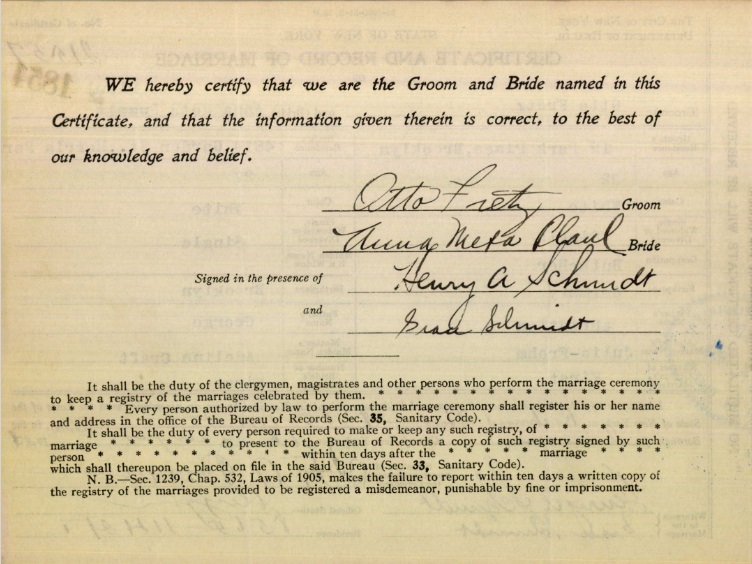 WE hereby certify that we are the Groom and Bride named in this
Certificate, and that the information given therein is correct, to the best of
our knowledge and belief.
Otto Fretz Groom
Anna Meta Plaul Bride
Signed in the presence of Henry A Schmidt
and
Schmidt
It shall be the duty of the clergymen, magistrates and other persons who perform the marriage ceremony
to keep a registry of the marriages celebrated by them. * * * * * * * * * * * * * * * *
* * * * Every person authorized by law to perform the marriage ceremony shall register his or her name
and address in the office of the Bureau of Records (Sec. 35, Sanitary Code).
It shall be the duty of every person required to make or keep any such registry, of * * * * * *
marriage * * * * * to present to the Bureau of Records a copy of such registry signed by such
person * * * * * * * * * * within ten days after the * * * * * marriage * * * *
which shall thereupon be placed on file in the said Bureau (Sec. 33, Sanitary Code).
N. B.—Sec. 1239, Chap. 532, Laws of 1905, makes the failure to report within ten days a written copy of
the registry of the marriages provided to be registered a misdemeanor, punishable by fine or imprisonment.